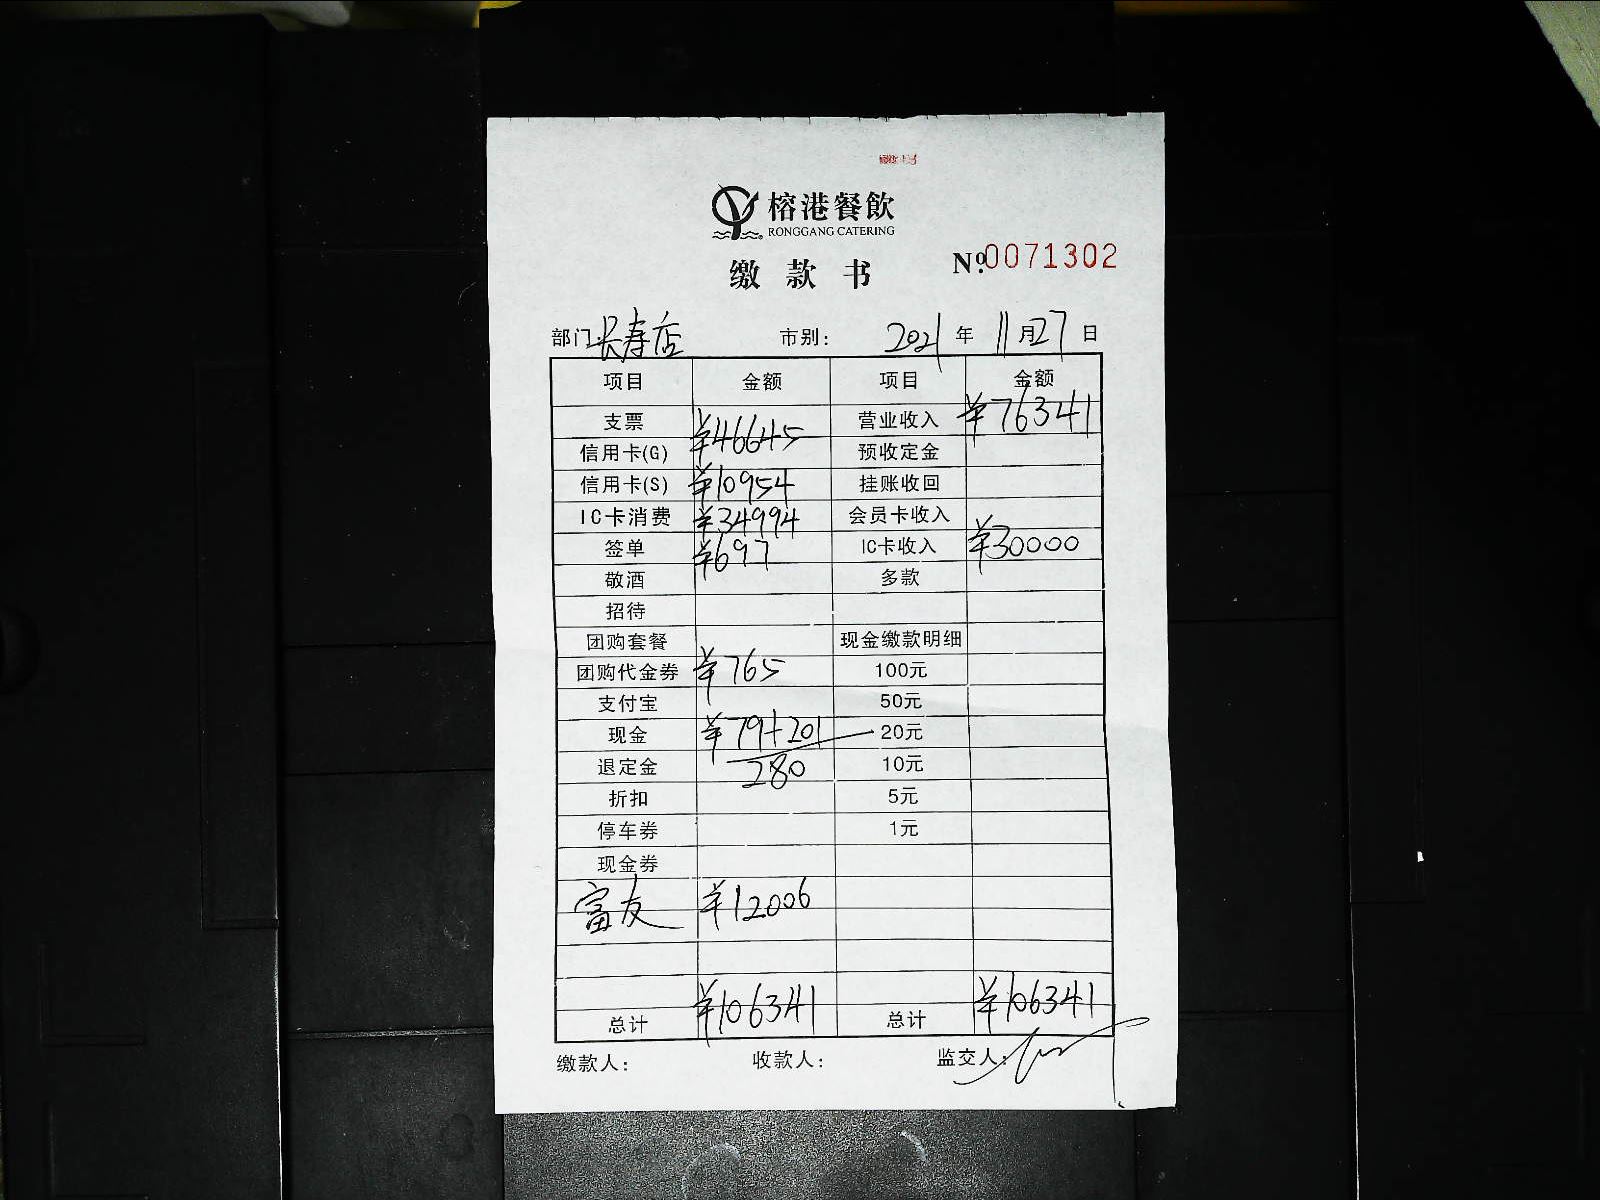 榕港餐飲
RONGGANG CATERING
缴款书
№0071302
部门:长寿店 市别: 2021年11月27日
项目 金额 项目 金额
支票 营业收入 ¥76341
信用卡(G) ¥46645 预收定金
信用卡(S) ¥10954 挂账收回
IC卡消费 ¥34994 会员卡收入
签单 ¥697 IC卡收入 ¥30000
敬酒 多款
招待
团购套餐 现金缴款明细
团购代金券 ¥765 100元
支付宝 50元
现金 ¥79+201 20元
退定金 280 10元
折扣 5元
停车券 1元
现金券
富友 ¥12006
总计 ¥106341 总计 ¥106341
缴款人: 收款人: 监交人: